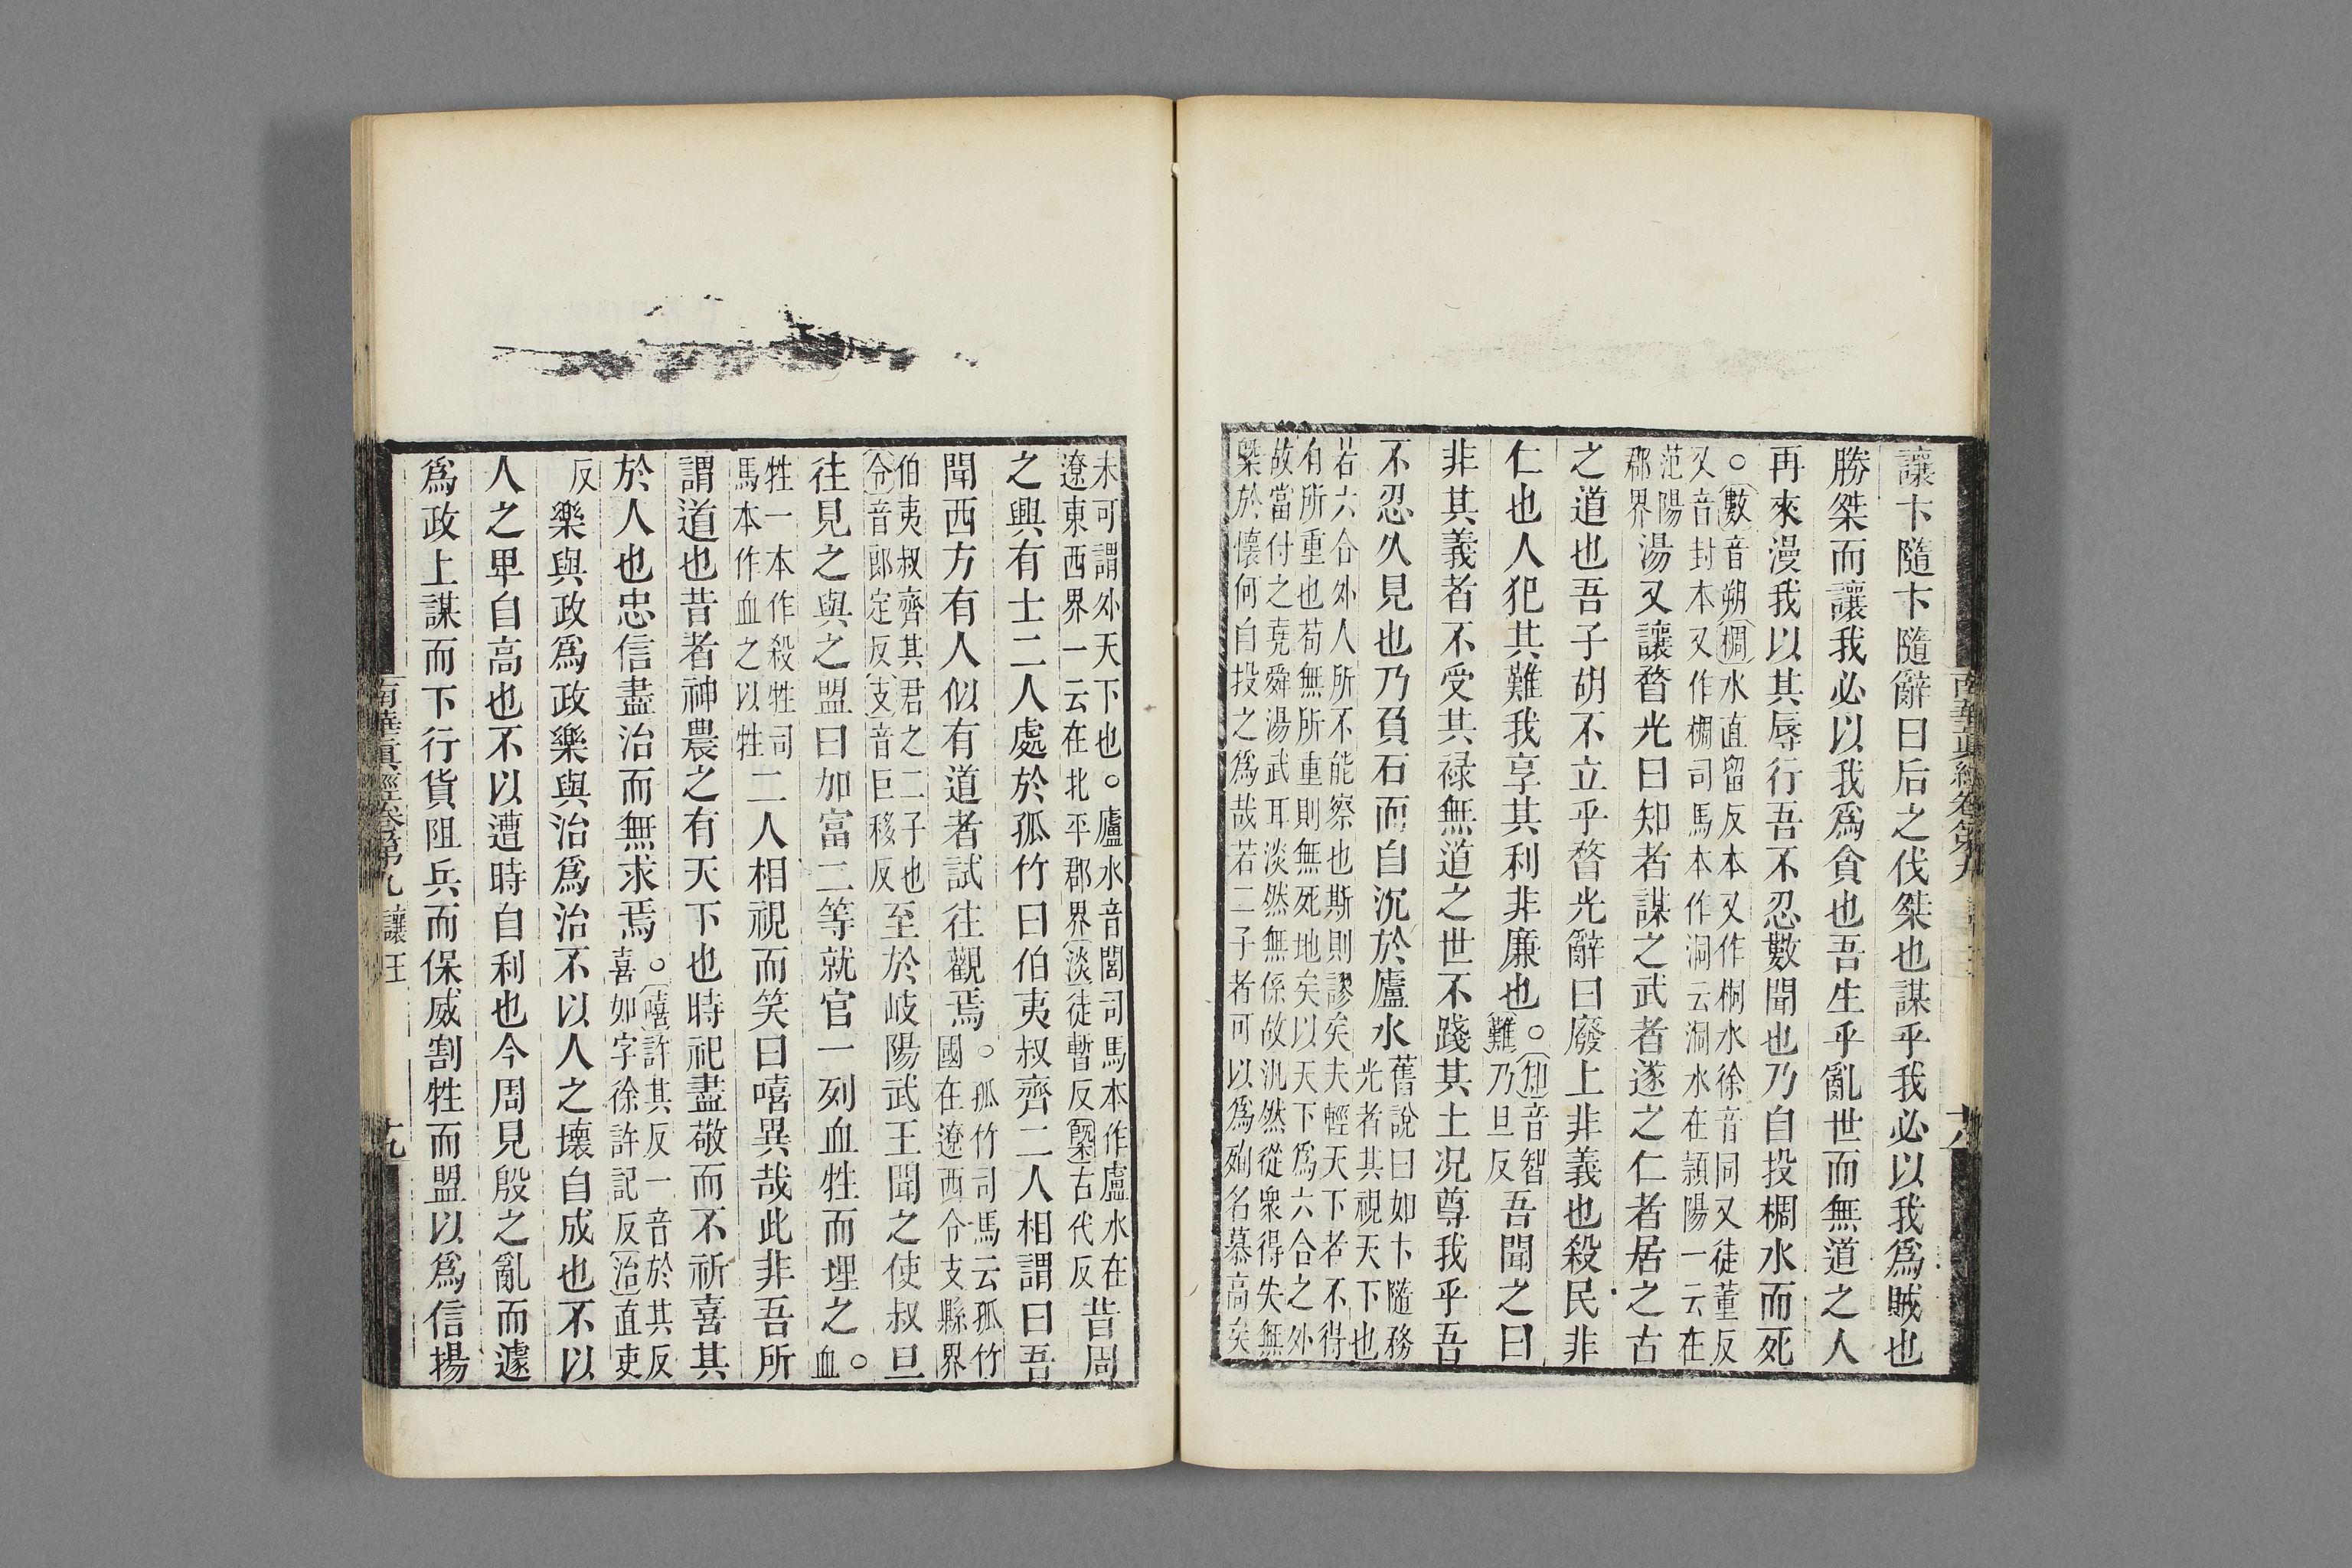 讓卞隨卞隨辭曰后之伐桀也謀乎我必以我爲賊也
勝桀而讓我必以我爲貪也吾生乎亂世而無道之人
再來漫我以其辱行吾不忍數聞也乃自投椆水而死
○數音朔椆水直留反本又作桐水徐音同又徒董反
又音封本又作椆司馬本作洞云洞水在潁陽一云在
范陽
郡界
湯又讓瞀光曰知者謀之武者遂之仁者居之古
之道也吾子胡不立乎瞀光辭曰廢上非義也殺民非
仁也人犯其難我享其利非廉也
○知音智
難乃旦反
吾聞之曰
非其義者不受其祿無道之世不踐其土況尊我乎吾
不忍久見也乃負石而自沉於廬水
舊說曰如卞隨務
光者其視天下也
若六合外人所不能察也斯則謬矣夫輕天下者不得
有所重也苟無所重則無死地矣以天下爲六合之外
故當付之堯舜湯武耳淡然無係故汎然從衆得失無
槩於懷何自投之爲哉若二子者可以爲殉名慕高矣
南華眞經卷第九
十八
未可謂外天下也○廬水音閭司馬本作盧水在
遼東西界一云在北平郡界淡徒暫反槩古代反
昔周
之興有士二人處於孤竹曰伯夷叔齊二人相謂曰吾
聞西方有人似有道者試往觀焉
○孤竹司馬云孤竹
國在遼西令支縣界
伯夷叔齊其君之二子也
令音郎定反支音巨移反
至於岐陽武王聞之使叔旦
往見之與之盟曰加富二等就官一列血牲而埋之
○
血
牲一本作殺牲司
馬本作血之以牲
二人相視而笑曰嘻異哉此非吾所
謂道也昔者神農之有天下也時祀盡敬而不祈喜其
於人也忠信盡治而無求焉
○嘻許其反一音於其反
喜如字徐許記反治直吏
反
樂與政爲政樂與治爲治不以人之壞自成也不以
人之卑自高也不以遭時自利也今周見殷之亂而遽
爲政上謀而下行貨阻兵而保威割牲而盟以爲信揚
南華眞經卷第九 讓王
十九